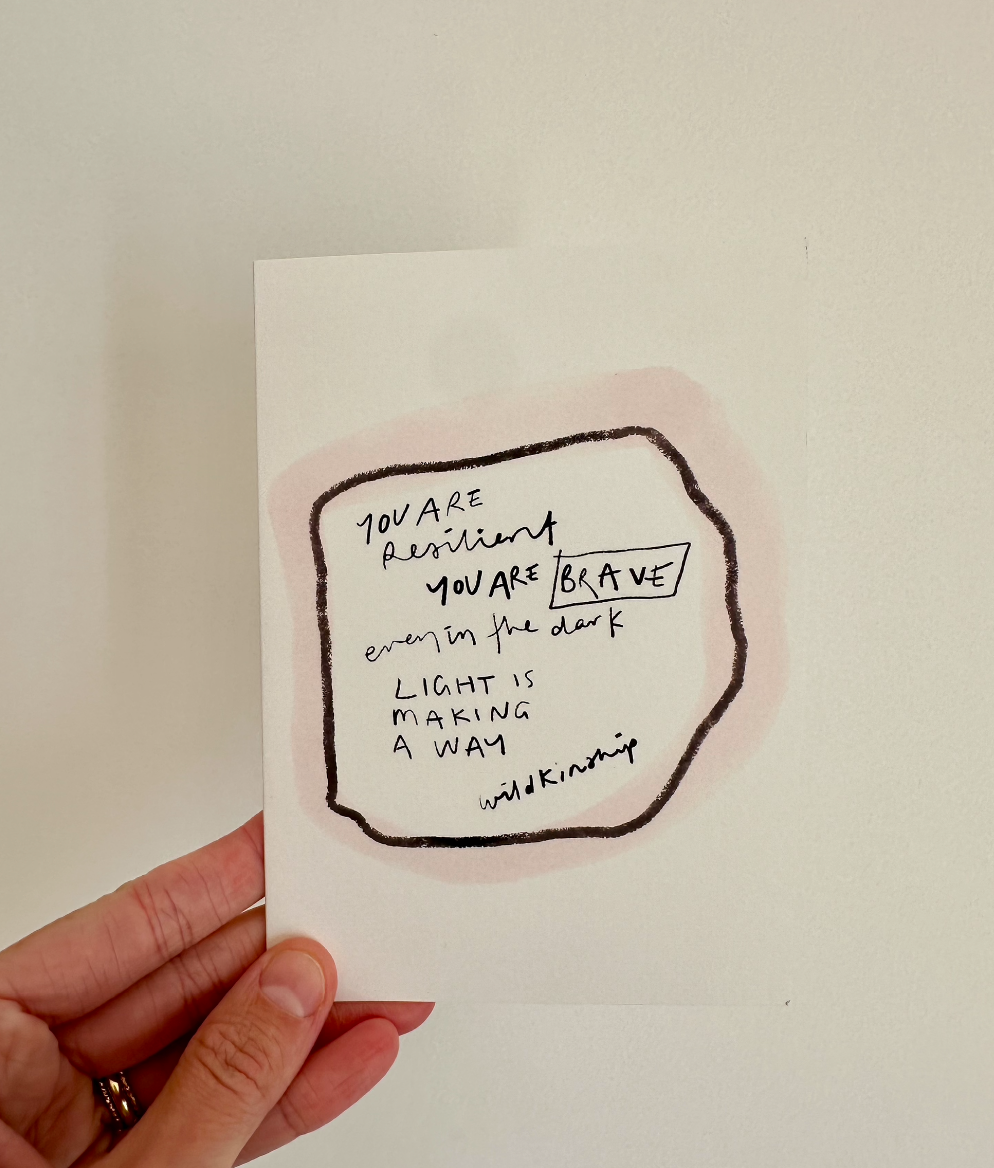 YOU ARE
Resilient
YOU ARE BRAVE
even in the dark
LIGHT IS
MAKING
A WAY
wildkinship